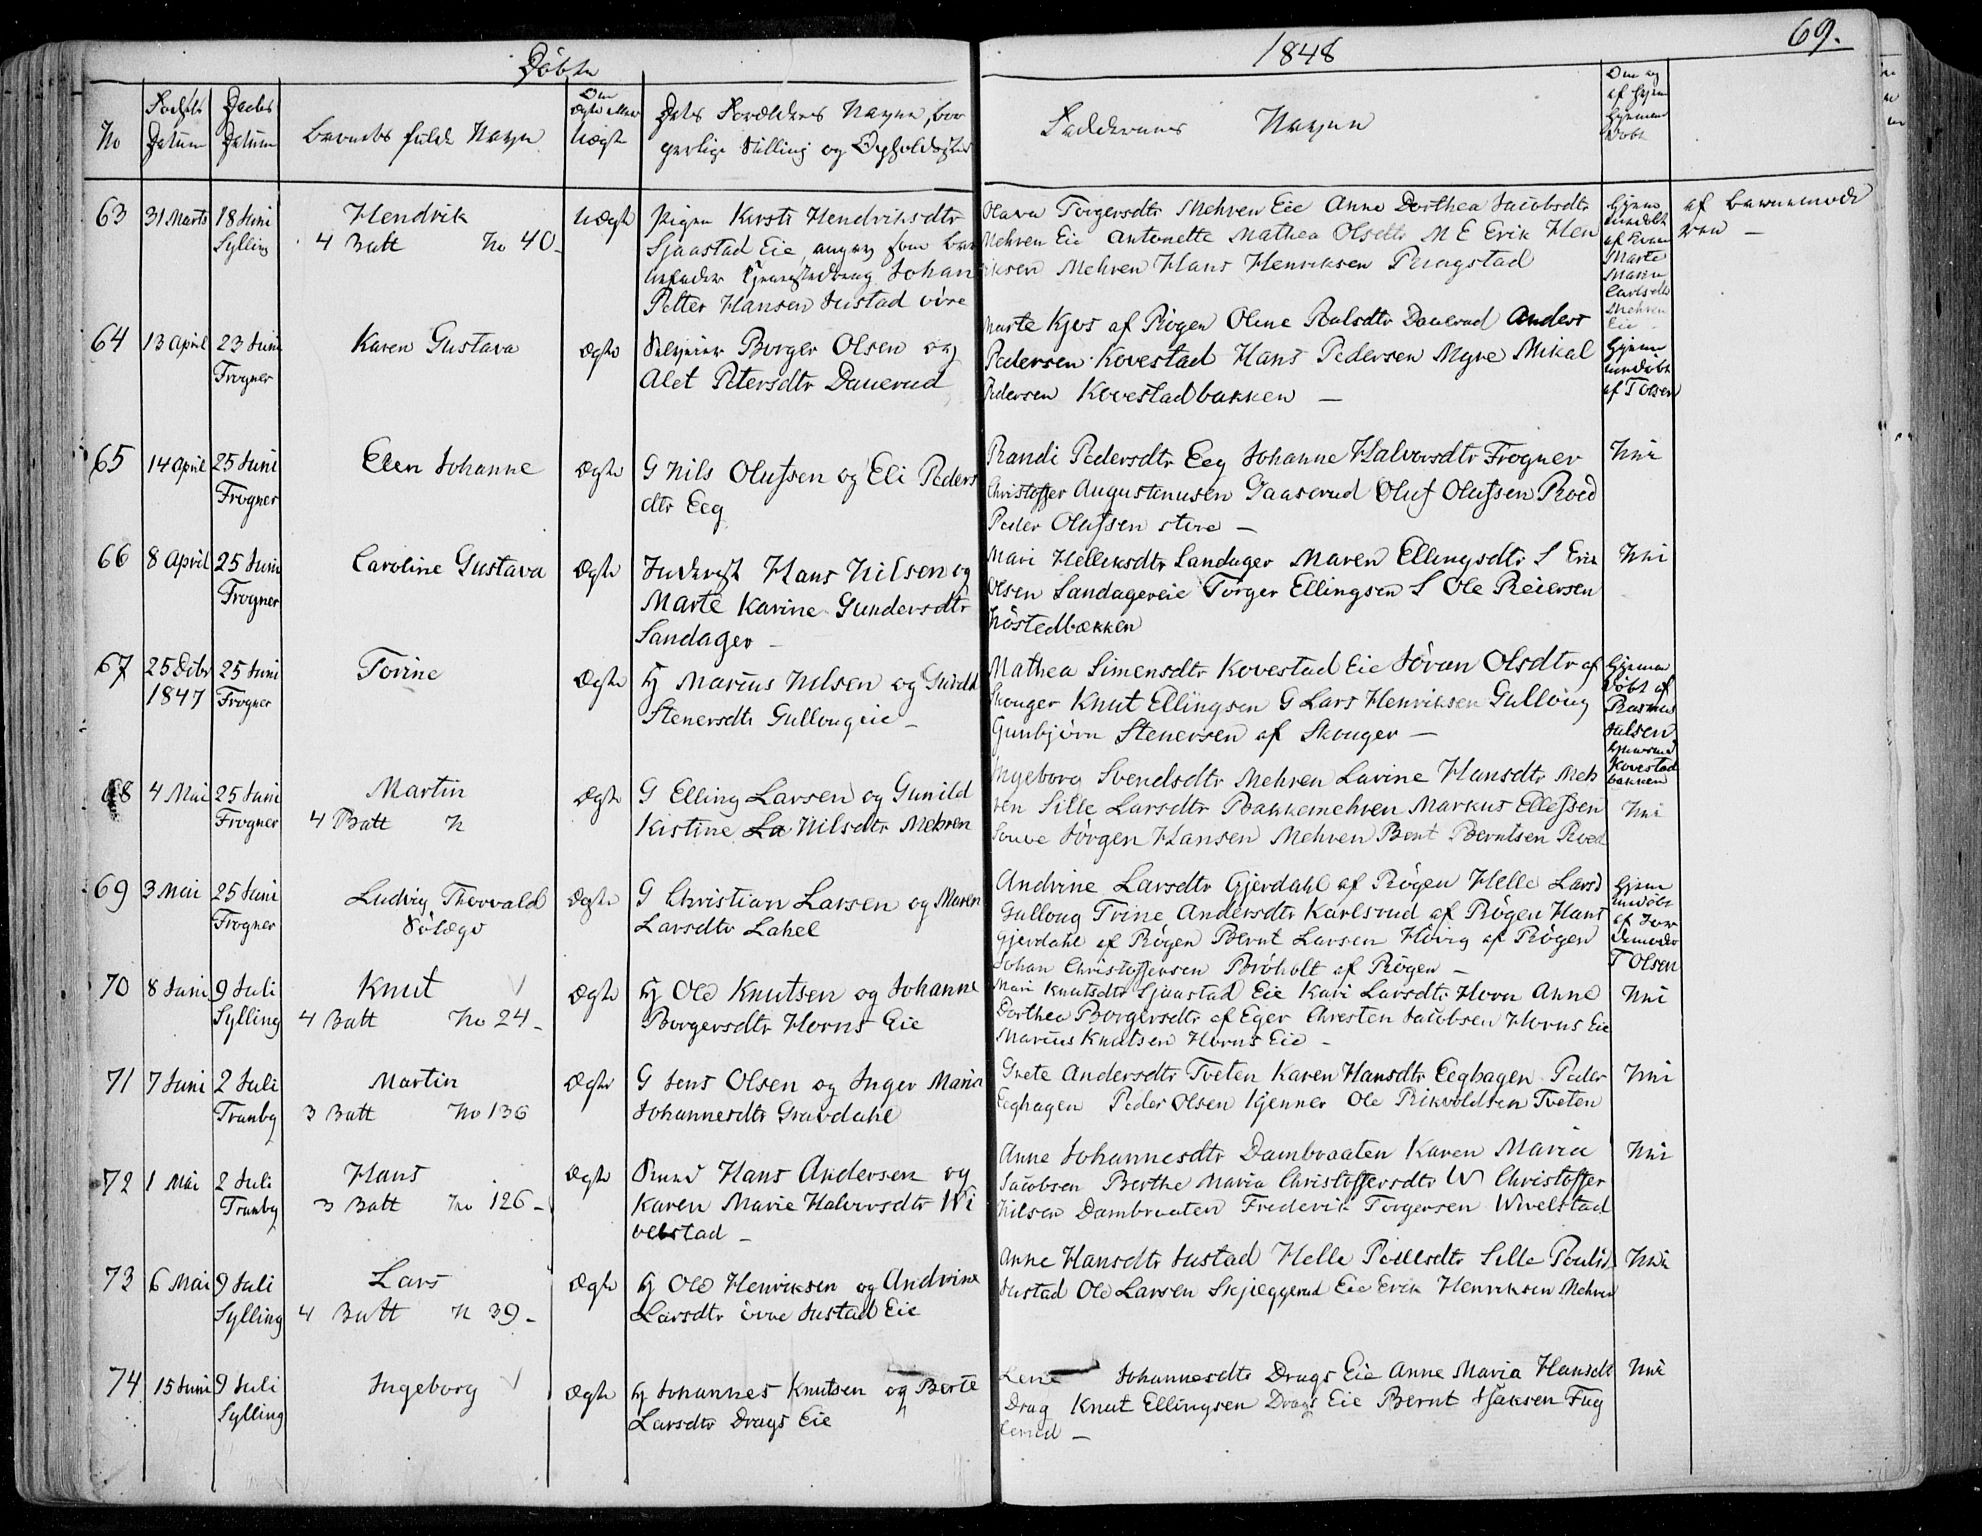 Døbte
1848
69.
No
Fødsels Datum
Daabs Datum
Barnets fulde Navn
Om Ægte eller Uægte
Dets Forældres Navne, bor
gerlige Stilling og Opholdssted
Faddernes Navne
63 31 Marts 18 Juni Hendrik Uægte Pigen Kirsti Hendriksdtr Olava Torgersdtr Mehren Eie Anne Dorthea Jacobsdtr Hjemme af Barnemode
Sylling 4 Batt No 40 - Sjaastad Eie, angav som Bar Mehren Eie Antonette Mathea Olsdtr M E Erik Hen ren -
nefader Johan riksen Mehren Hans Henriksen Ringstad Marte Maria
Petter Hansen Justad øvre Carlsdtr Mehren Eie
64 13 April 23 Juni Karen Gustava Ægte Selveier Borger Olsen og Marte Kjos af Røgen Oline Pålsdtr Dauerud Anders Hjemme
Frogner Alet Petersdtr Dauerud Pedersen Kovestad Hans Pedersen Myre Mikal døbt
Pedersen Kovestadbakken - af T Olsen
65 14 April 25 Juni Elen Johanne Ægte G Nils Olufsen og Eli Peders Randi Pedersdtr Eeg Johanne Halvorsdtr Frogner Nei
Frogner dtr Eeg Christoffer Augustinusen Gaaserud Oluf Olufsen Roed
Peder Olufsen store -
66 8 April 25 Juni Caroline Gustava Ægte Inderst Hans Nilsen og Mari Helliksdtr Sandager Maren Ellingsdtr S Erik Nei
Frogner Marte Karine Gundersdtr Olsen Sandagereie Torger Ellingsen S Ole Reiersen
Sandager - Høstedbækken
67 25 Octbr 25 Juni Torine Ægte Hj Marius Nilsen og Gunild Mathea Simensdtr Kovestad Eie Jøran Olsdtr af Hjemme
1847 Frogner Stenersdtr Gulloug eie - Skouger Knut Ellingsen G Lars Henriksen Gulloug døbt af Rasmus
Gunbjørn Stenersen af Skouger - Kovestad bakken
68 4 Mai 25 Juni Martin Ægte G Elling Larsen og Gunild Ingeborg Svendsdtr Mehren Lavine Hansdtr Meh
Frogner 4 Batt N Kistine La Nilsdtr Mehren ren Sille Larsdtr Bakkemehren Markus Ellefsen Nei
Jørgen Hansen Mehren Bent Berntsen Roed
69 3 Mai 25 Juni Ludvig Thorvald Ægte G Christian Larsen og Maren Andrine Larsdtr Gjerdahl af Røgen Helle Larsd Hjemme
Frogner Larsdtr Lahel Gulloug Trine Andersdtr Karlsrud af Røgen Hans døbt
Gjerdahl af Røgen Bernt Larsen Høvig af Røgen af Jor demoder
Johan Christoffersen Brøholt af Røgen - T Olsen
70 8 Juni 9 Juli Knut Ægte Hj Ole Knutsen og Johanne Mari Knutsdtr Sjaastad Eie Kari Larsdtr Horn Anne Nei
Sylling 4 Batt No 24 - Borgersdtr Horns Eie Dorthea Borgersdtr af Eger Christen Jacobsen Horns Eie
Marius Knutsen Horns Eie -
71 7 Juni 2 Juli Martin Ægte G Jens Olsen og Inger Maria Grete Andersdtr Tveten Karen Hansdtr Eeghagen Peder Nei
Tranby 3 Batt No 136 Johannesdtr Gravdahl Eeghagen Peder Olsen Kjenner Ole Rikvoldsen Tveten
72 1 Mai 2 Juli Hans Ægte Hans Andersen og Anne Johannesdtr Dambraaten Karen Maria Nei
Tranby 3 Batt No 126 - Karen Marie Halvorsdtr Wi Jacobsen Berthe Maria Christoffersdtr W Christoffer
velstad - Nilsen Dambraaten Frederik Torgersen Wivelstad
73 6 Mai 9 Juli Lars Ægte Hj Ole Henriksen og Andrine Anne Hansdtr Justad Helle Pedersdtr Sille Poulsd Nei
Sylling 4 Batt N 39 - Larsdtr øvre Justad Eie Justad Ole Larsen Skjæggerud Eie Erik Henriksen Mehren
74 15 Juni 9 Juli Ingeborg Ægte Hj Johannes Knutsen og Berte Lene Johannesdtr Drags Eie Anne Maria Hansdt Nei
Sylling Larsdtr Drags Eie Drag Knut Ellingsen Drags Eie Bernt Isaksen Fug
lerud -